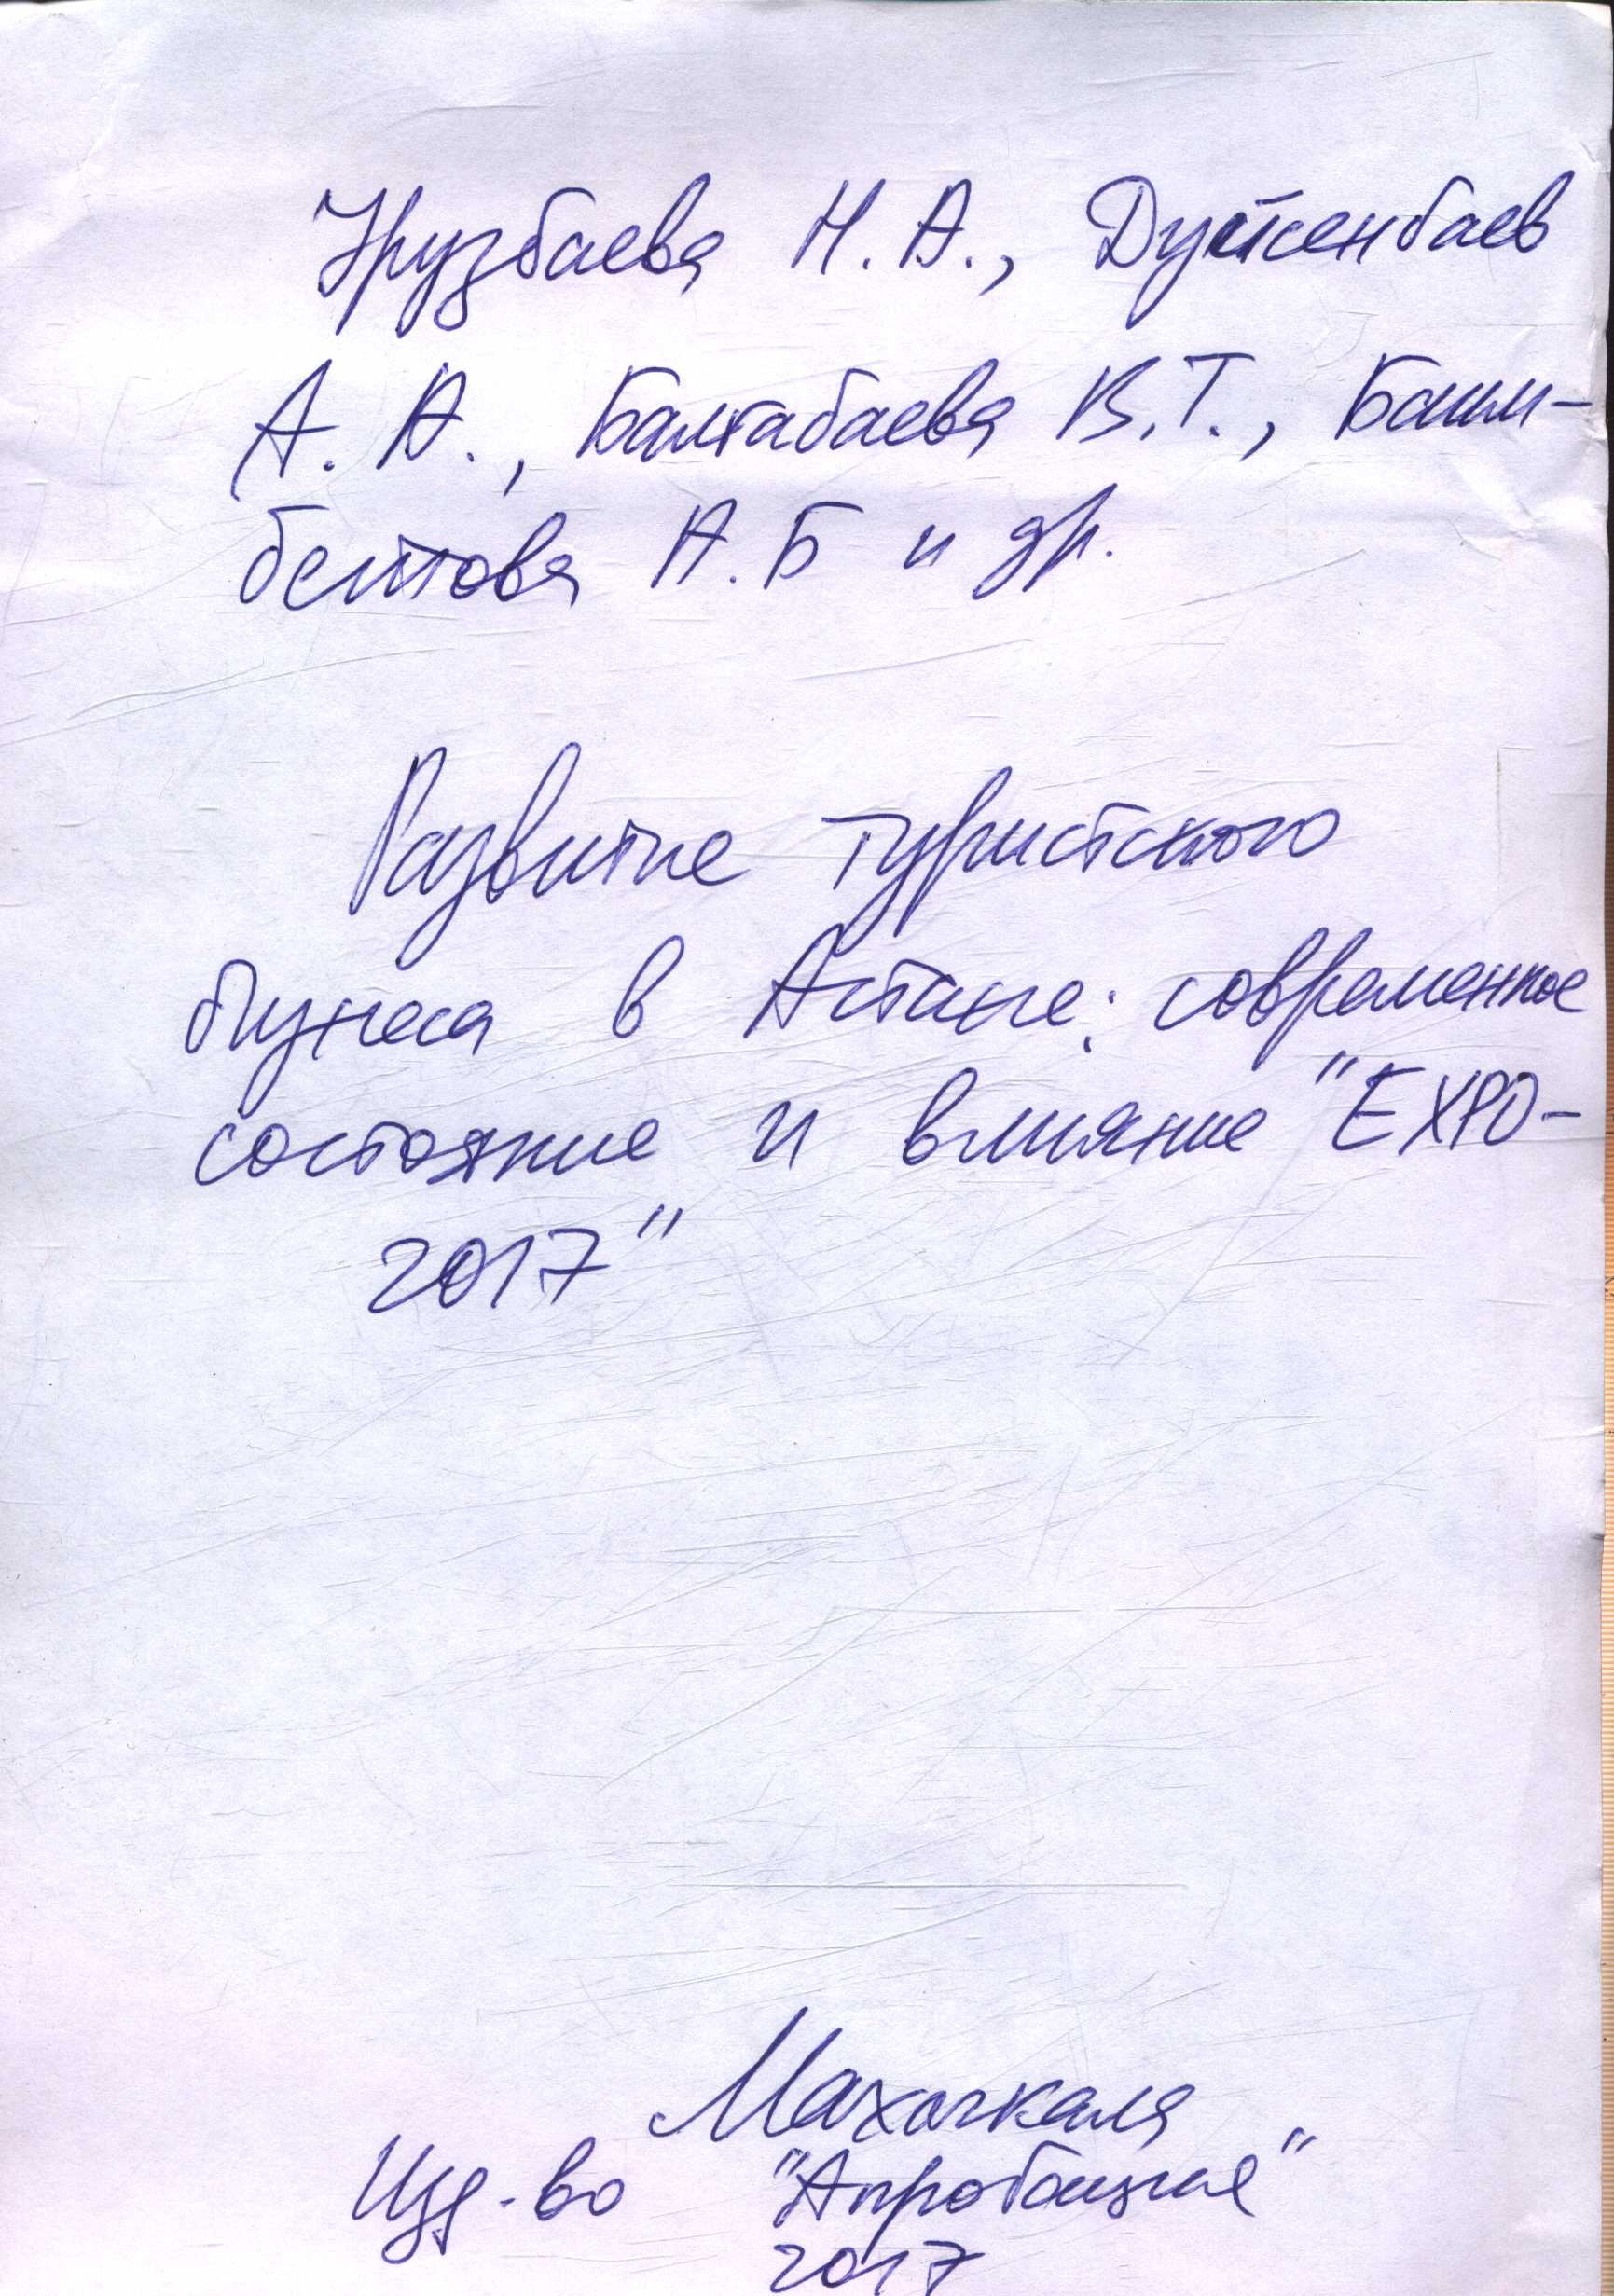 Урузбаева Н. А., Дуйсенбаев
А. А., Балтабаева В.Т., Баим-
бетова А.Б и др.
Развитие туристского
бизнеса в Астане: современное
состояние и влияние "EXPO-
2017"
Махачкала
Изд-во "Апробация"
2017